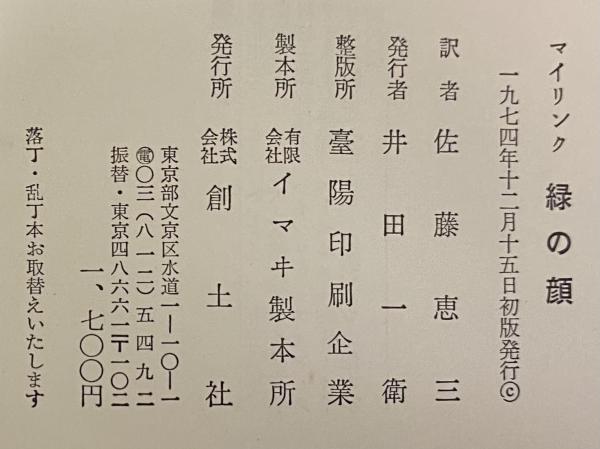 マイリンク 緑の顔
一九七四年十二月十五日初版発行©
訳者 佐藤恵三
発行者 井田一衛
整版所 臺陽印刷企業
製本所 有限会社イマヰ製本所
発行所 株式会社創土社
東京部文京区水道一―一〇―一
電〇三(八一二)五四九二
振替・東京四八六六一〒一〇二
一、七〇〇円
落丁・乱丁本お取替えいたします